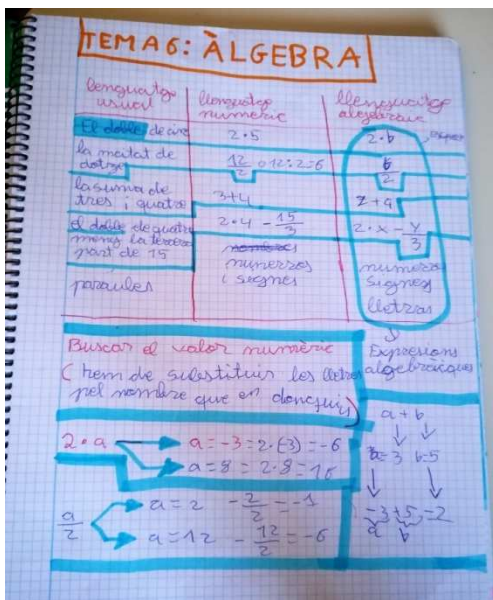 TEMA 6: ÀLGEBRA
llenguatge usual
llenguatge numèric
llenguatge algebraic
El doble de cinc
2·5
2·b
la meitat de dotze
12/2 o 12:2=6
b/2
la suma de tres i quatre
3+4
z+q
el doble de quatre menys la tercera part de 15
2·4 - 15/3
2·x - y/3
paraules
numerros i signes
numeros signes lletras
Expresions algebraiques
Buscar el valor numèric
(hem de substituir les lletres
pel nombre que en donguis)
2·a
a=-3=2·(3)=-6
a=8=2·8=16
a/2
a=2 -2/2=-1
a=12 -12/2=-6
a+b
a=3 b=5
=-3+5=2
a b